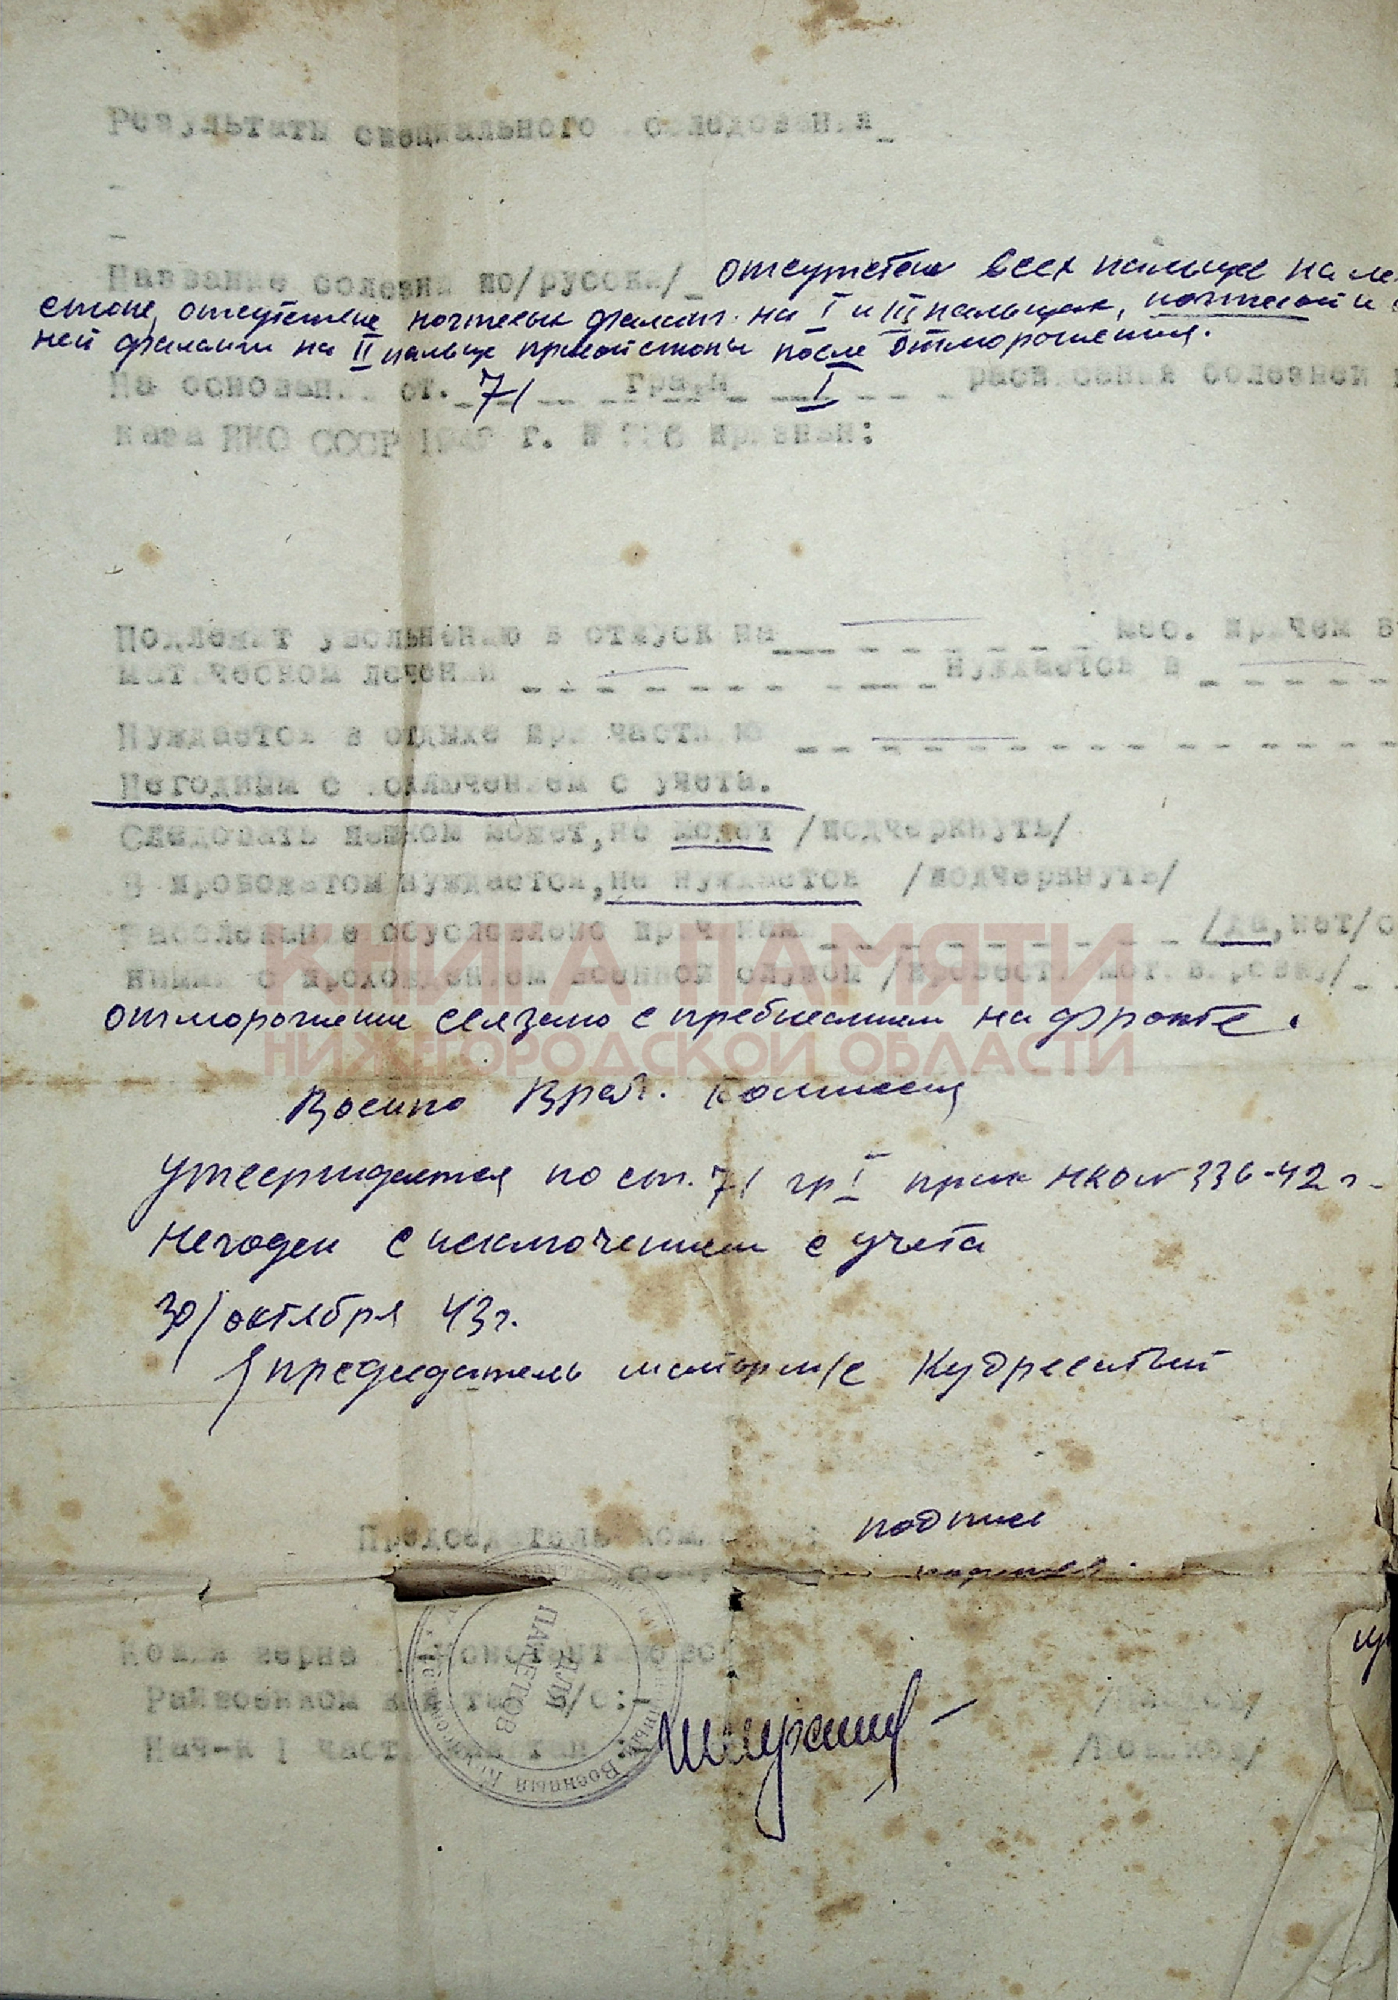 Результаты специального обследования_
Название болезни по/русски/_ отсутствие всех пальцев на ле
стопе, отсутствие ногтевых фаланг на I и III пальцах, ногтевой и
ней фаланги на II пальце правой стопы после отморожения.
На основании ст. 71 графы I расписания болезней
каза НКО СССР 1942 г. № 336 признан:
Подлежит увольнению в отпуск на мес. причем в
матическом лечении нуждается в
Нуждается в отдыхе при части
Негодным с исключением с учета.
Следовать пешком может, не может /подчеркнуть/
В провожатом нуждается, не нуждается /подчеркнуть/
Заболевание обусловлено причинами /да, нет/
ными с прохождением военной службы /провести мотивировку/
КНИГА ПАМЯТИ
отморожение связано с пребыванием на фронте.
НИЖЕГОРОДСКОЙ ОБЛАСТИ
Военно Врач. Комиссия
утверждается по ст. 71 гр I прик НКО № 336-42 г.
Негоден с исключением с учета
30/ октября 43 г.
председатель майор м/с
Председатель ком.
подпись
Копия верна:
Райвоенком
Нач-к 1 части
ДЛЯ ПАКЕТОВ
Военный